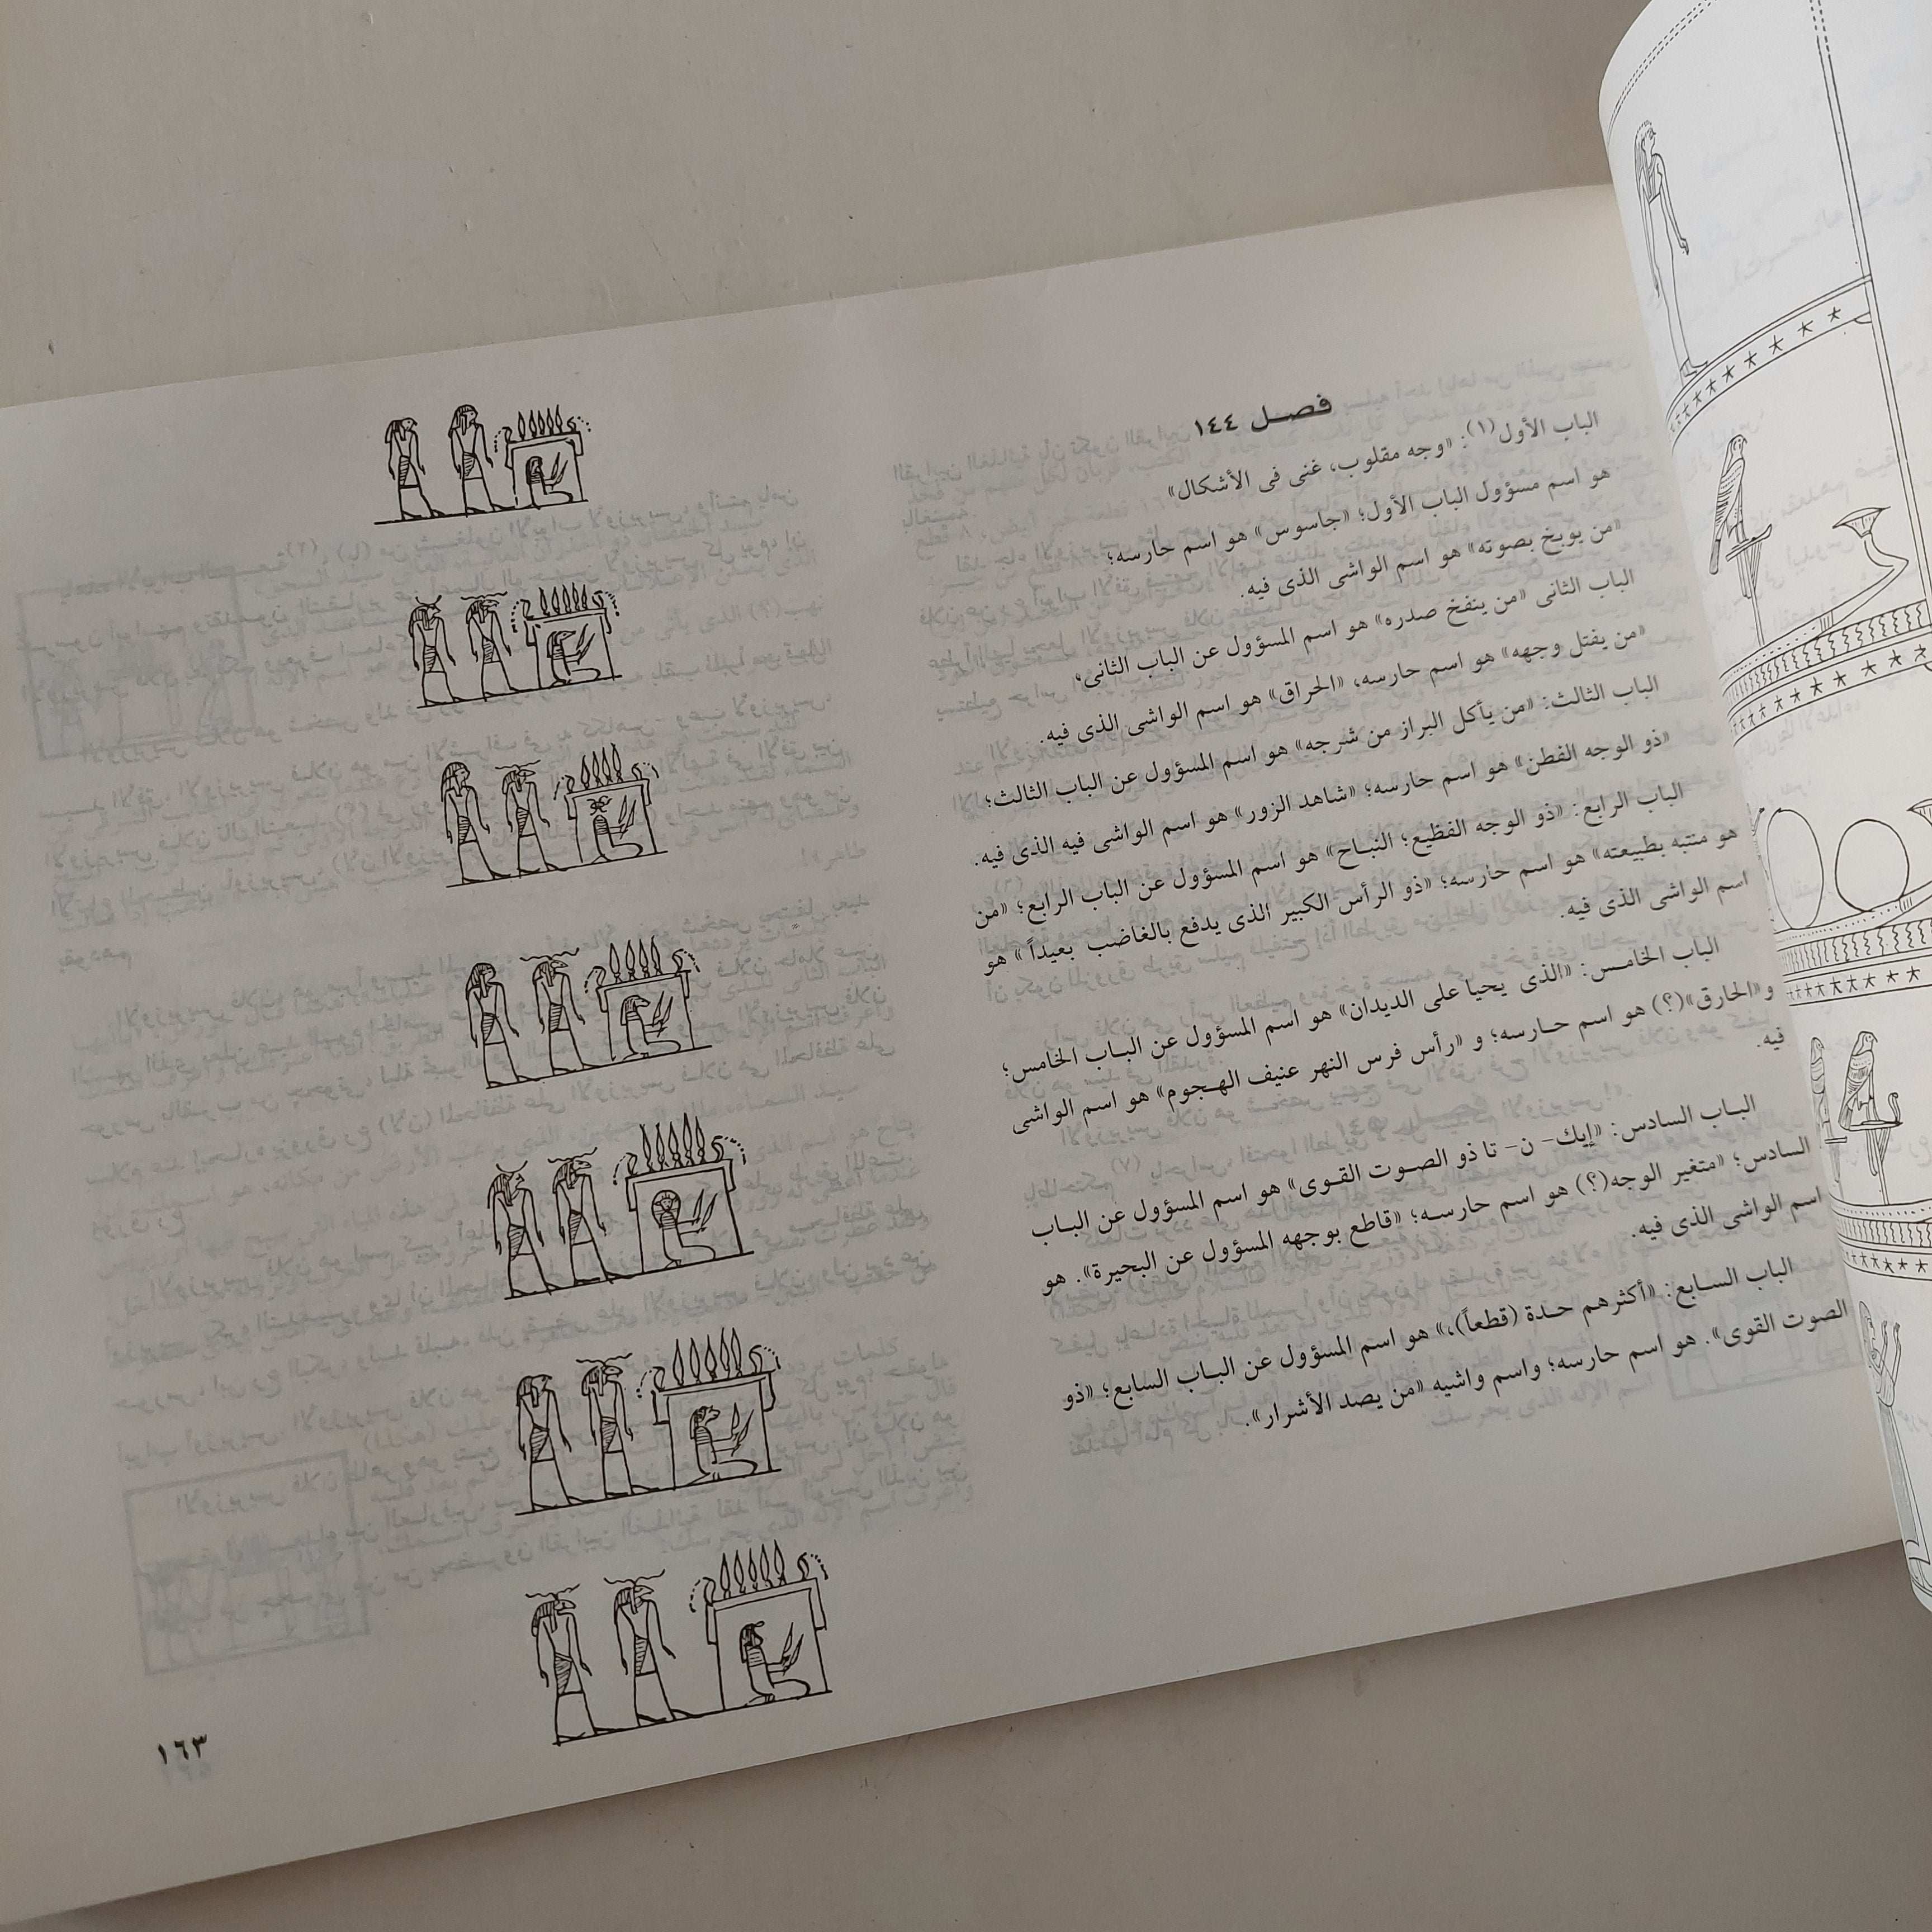 فصل ١٤٤
الباب الأول(١): «وجه مقلوب، غنى فى الأشكال»
هو اسم مسؤول الباب الأول؛ «جاسوس» هو اسم حارسه؛
«من يوبخ بصوته» هو اسم الواشى الذى فيه.
الباب الثانى «من ينفخ صدره» هو اسم المسؤول عن الباب الثانى،
«من يفتل وجهه» هو اسم حارسه، «الحراق» هو اسم الواشى الذى فيه.
الباب الثالث: «من يأكل البراز من شرجه» هو اسم المسؤول عن الباب الثالث؛
«ذو الوجه الفطن» هو اسم حارسه؛ «شاهد الزور» هو اسم الواشى فيه الذى فيه.
الباب الرابع: «ذو الوجه الفظيع؛ النباح» هو اسم المسؤول عن الباب الرابع؛ «من
هو منتبه بطبيعته» هو اسم حارسه؛ «ذو الرأس الكبير الذى يدفع بالغاضب بعيداً» هو
اسم الواشى الذى فيه.
الباب الخامس: «الذى يحيا على الديدان» هو اسم المسؤول عن الباب الخامس؛
و«الحارق»(؟) هو اسم حارسه؛ و «رأس فرس النهر عنيف الهجوم» هو اسم الواشى
فيه.
الباب السادس: «إيك- ن- تا ذو الصوت القوى» هو اسم المسؤول عن الباب
السادس؛ «متغير الوجه(؟) هو اسم حارسه؛ «قاطع بوجهه المسؤول عن البحيرة». هو
اسم الواشى الذى فيه.
الباب السابع: «أكثرهم حدة (قطعاً)،» هو اسم المسؤول عن الباب السابع؛ «ذو
الصوت القوى». هو اسم حارسه؛ واسم واشيه «من يصد الأشرار».
١٦٣